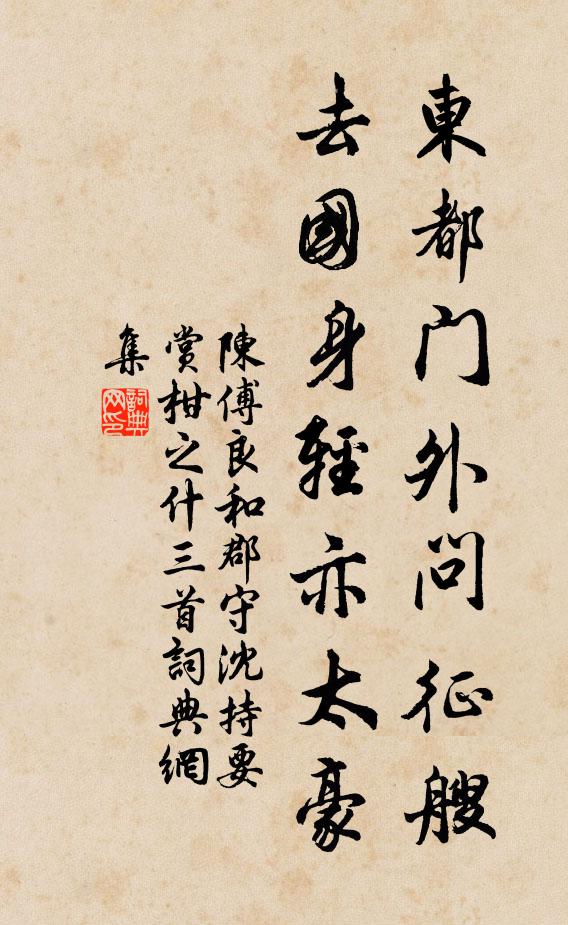 東都門外問征艘
去國身輕亦太豪
陳傅良和郡守沈持要
賞柑之什三首詞典網
集
詞典網印